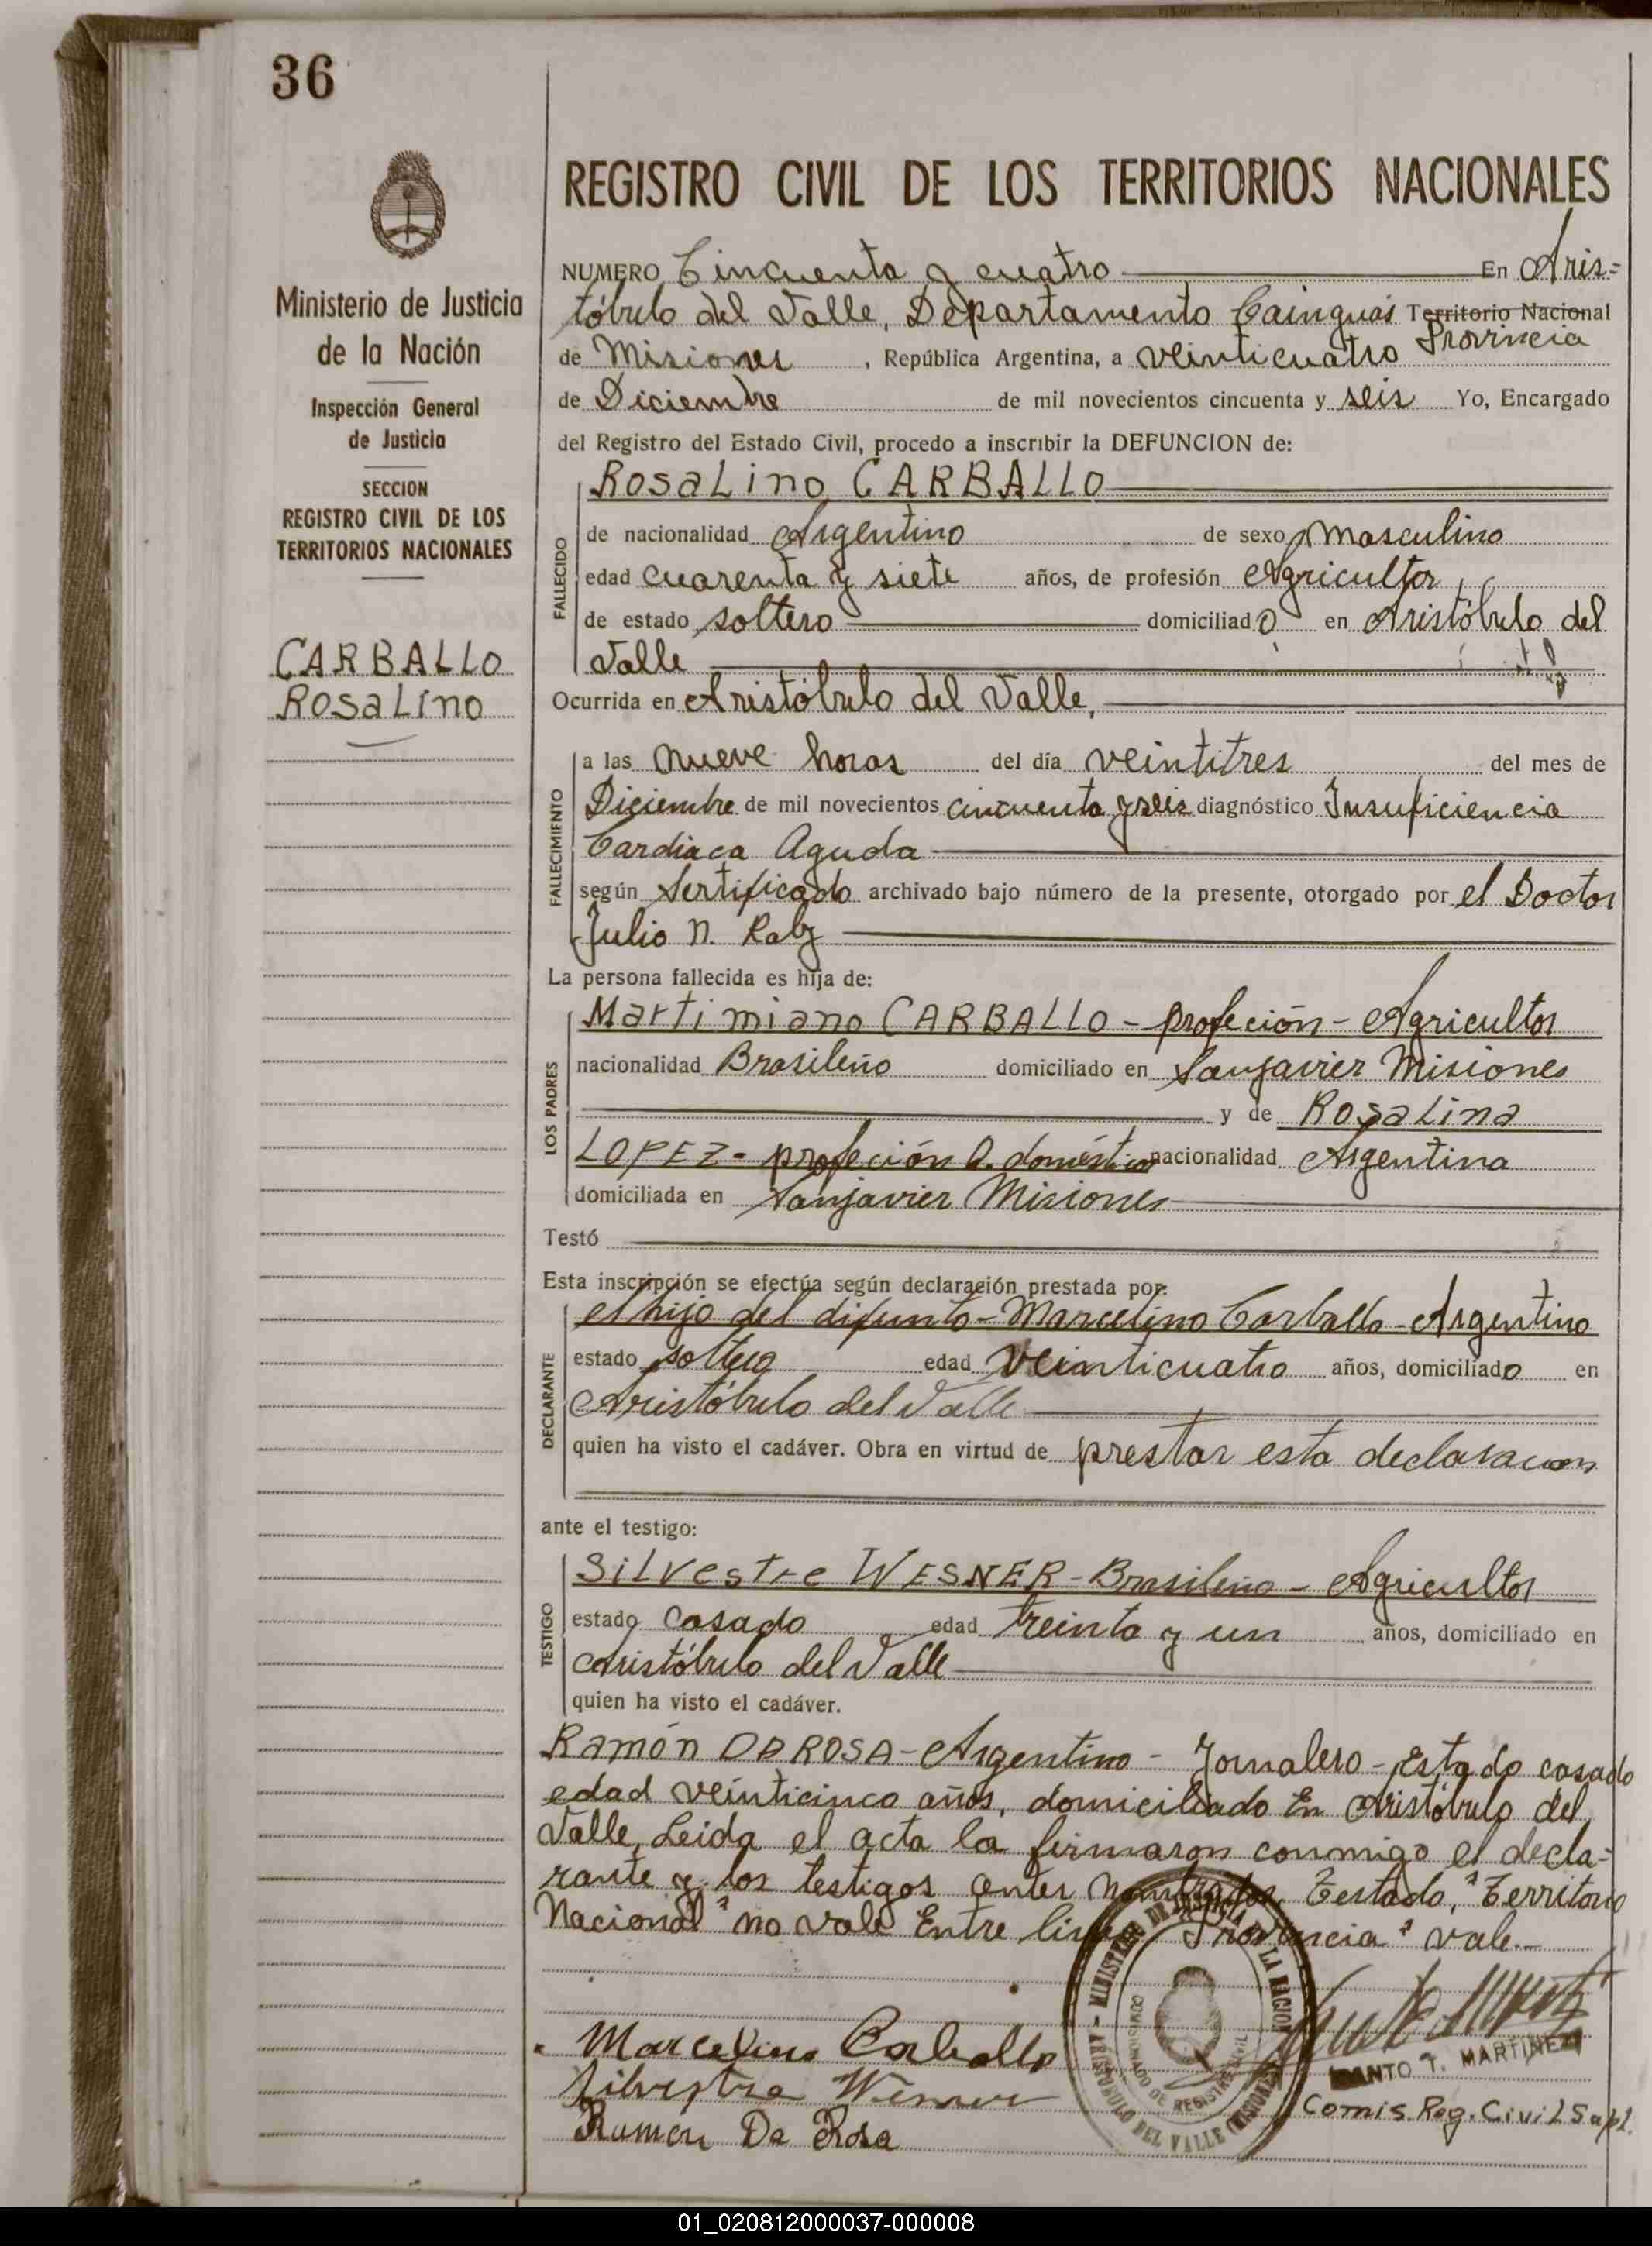 36
Ministerio de Justicia
de la Nación
Inspección General
de Justicia
SECCION
REGISTRO CIVIL DE LOS
TERRITORIOS NACIONALES
CARBALLO
ROSALINO
REGISTRO CIVIL DE LOS TERRITORIOS NACIONALES
NUMERO Cincuenta y cuatro En Aris=
tóbulo del Valle, Departamento Cainguás Territorio Nacional
Provincia
de Misiones , República Argentina, a veinticuatro
de Diciembre de mil novecientos cincuenta y seis Yo, Encargado
del Registro del Estado Civil, procedo a inscribir la DEFUNCION de:
ROSALINO CARBALLO
FALLECIDO
de nacionalidad Argentino de sexo masculino
edad cuarenta y siete años, de profesión Agricultor,
de estado soltero domiciliado en Aristóbulo del
Valle
Ocurrida en Aristóbulo del Valle,
FALLECIMIENTO
a las nueve horas del día veintitres del mes de
Diciembre de mil novecientos cincuenta y seis diagnóstico Insuficiencia
Cardiaca Aguda
según Sertificado archivado bajo número de la presente, otorgado por el Doctor
Julio N.
La persona fallecida es hija de:
LOS PADRES
Martimiano CARBALLO - profeción - Agricultor
nacionalidad Brasileño domiciliado en Sanjavier Misiones
y de ROSALINA
LOPEZ - profeción Q. doméstico nacionalidad Argentina
domiciliada en Sanjavier Misiones
Testó
Esta inscripción se efectúa según declaración prestada por:
DECLARANTE
el hijo del difunto - Marcelino Carballo - Argentino
estado soltero edad veinticuatro años, domiciliado en
Aristóbulo del Valle
quien ha visto el cadáver. Obra en virtud de prestar esta declaracion
ante el testigo:
TESTIGO
SILVESTRE WESNER - Brasileño - Agricultor
estado casado edad treinta y un años, domiciliado en
Aristóbulo del Valle
quien ha visto el cadáver.
Ramón DA ROSA - Argentino - Jornalero - Estado casado
edad veinticinco años, domiciliado En Aristóbulo del
Valle, Leida el acta la firmaron conmigo el decla=
rante y los testigos antes nombrados. Testado, "Territorio
Nacional" no vale Entre linea "Provincia" vale.-
Marcelino Carballo
Silvestre Wesner
Ramón Da Rosa
MINISTERIO DE JUSTICIA DE LA NACION
COMISIONADO DE REGISTRO CIVIL
ARISTOBULO DEL VALLE (MISIONES)
SANTO T. MARTINEZ
Comis. Reg. Civil Supl.
01_020812000037-000008